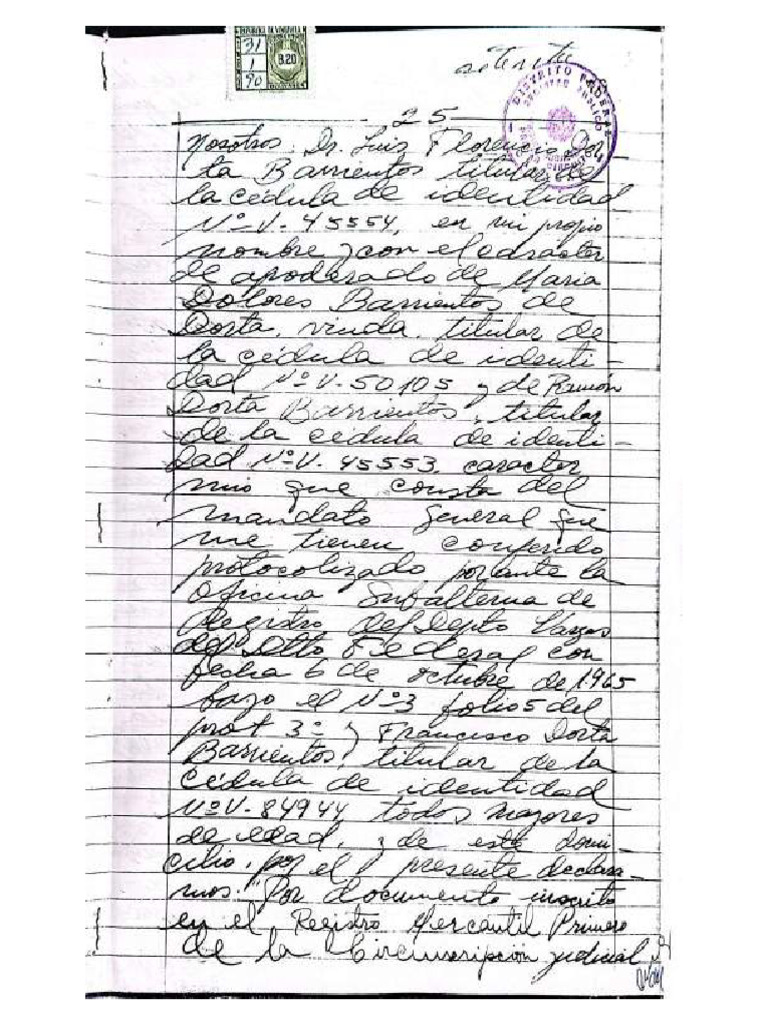 31
1
90
B.20
setenta
DISTRITO FEDERAL
25
Nosotros: Dr. Luis Florencio Dor
ta Barrientos titular de
la cédula de identidad
Nº V- 45554, en mi propio
nombre y con el carácter
de apoderado de María
Dolores Barrientos de
Dorta, viuda, titular de
la cédula de identi-
dad Nº V- 50105 y de Ramón
Dorta Barrientos, titular
de la cédula de identi-
dad Nº V. 45553, caracter
mio que consta del
mandato general que
me tienen conferido
protocolizado por ante la
Oficina Subalterna de
Registro del Depto Vargas
del Dtto Federal con
fecha 6 de octubre de 1965
bajo el Nº 3 folio 5 del
prot 3º y Francisco Dorta
Barrientos, titular de la
cédula de identidad
Nº V- 84944 todos mayores
de edad, y de este domi-
cilio, por el presente declara-
mos: "Por documento inscrito
en el Registro Mercantil Primero
de la Circunscripción judicial